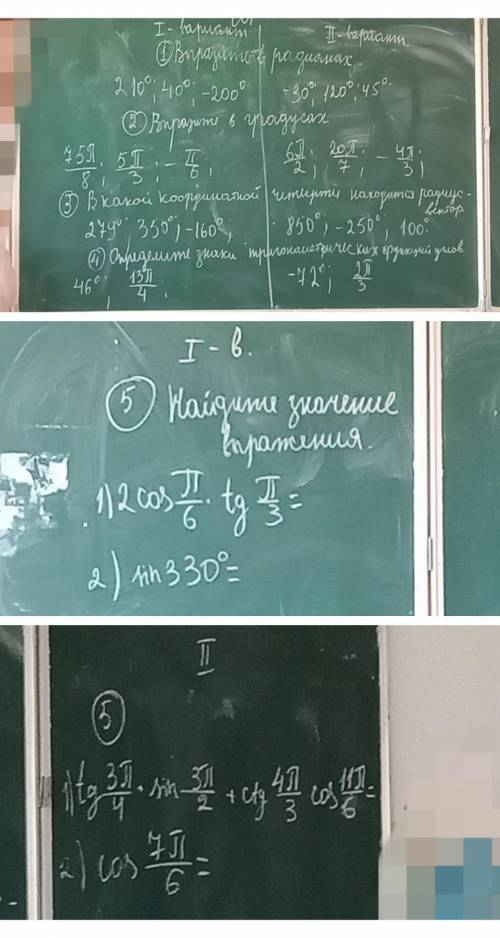 I - вариант II - вариант
① Выразите в радианах
210°; 40°; -200° -30°; 120°; 45°
② Выразите в градусах
75π/8; 5π/3; -π/6; 6π/2; 20π/7; -4π/3;
③ В какой координатной четверти находится радиус-
вектор
279°; 350°; -160°; 850°; -250°; 100°
④ Определите знаки тригонометрических функций углов
46°; 13π/4; -72°; 2π/3
I - в.
⑤ Найдите значение
выражения.
1) 2cos π/6 · tg π/3 =
2) sin 330° =
II
⑤
1) tg 3π/4 · sin 3π/2 + ctg 4π/3 cos 11π/6 =
2) cos 7π/6 =